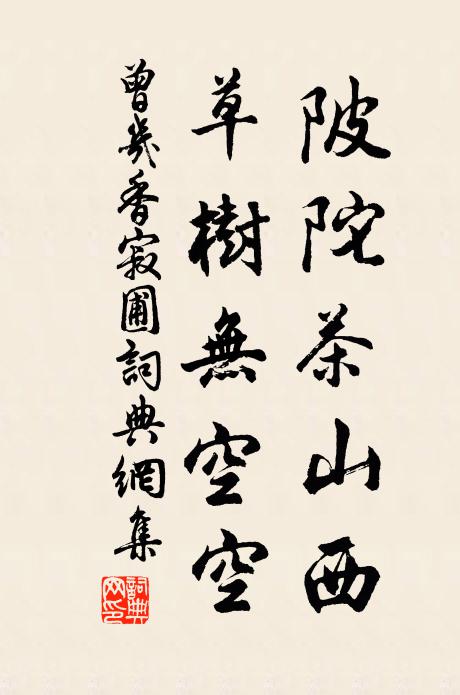 陂陀茶山西
草樹無空空
曾幾香寂圃詞典網集
詞典網印